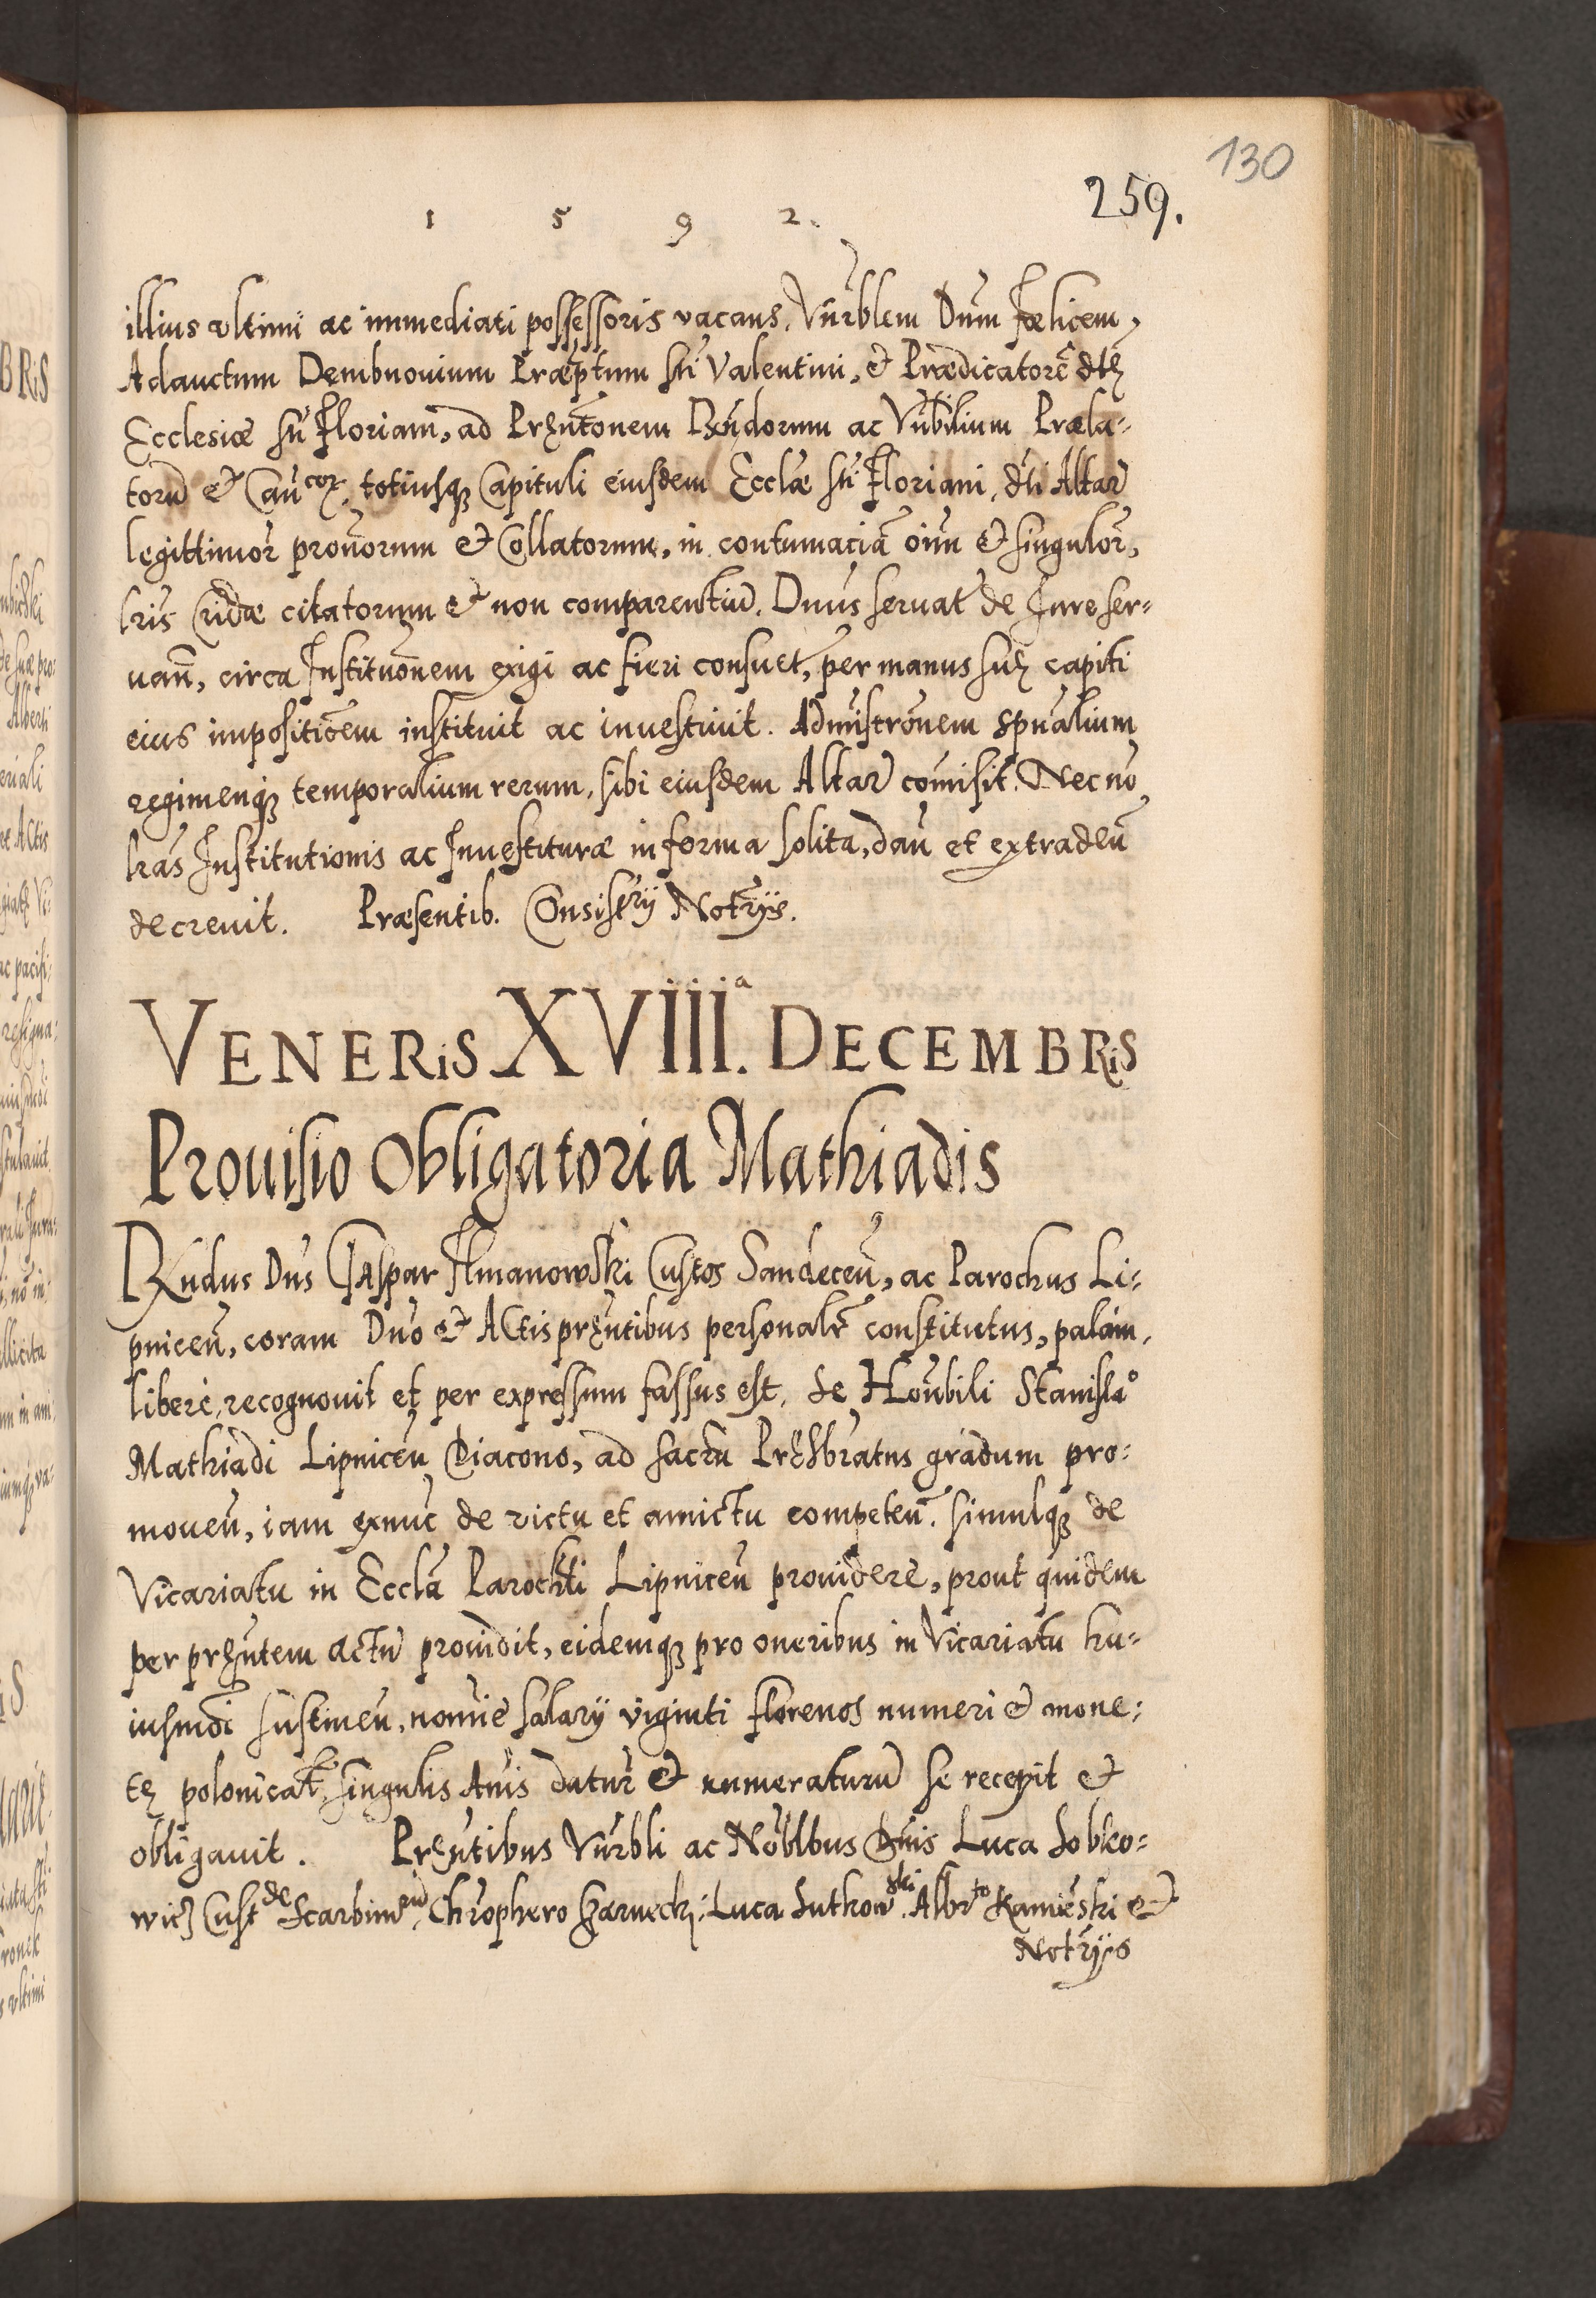 130
259.
1 5 9 2.
illius ultimi ac immediati possessoris vacans, Vnrblem Dnm Foelicem,
Adauctum Dembnouium Præptum Sti Valentini, et Prædicatorē dtę
Ecclesiæ Sti Floriani, ad Pręntonem Rndorum ac Vnbilium Præla-
torū et Cancor, totiusq3 Capituli eiusdem Ecclæ Sti Floriani, dti Altar
legittimor prouorum et Collatorum, in contumaciā oīm et singulor,
lris Cridæ citatorum et non comparentiū. Dnus seruat de Jure ser-
uan, circa Institutionem exigi ac fieri consuet, per manus suę capiti
eius impositioem instituit ac inuestiuit. Admistronem spualium
regimenq3 temporalium rerum, sibi eiusdem Altar comisit. Nec nō
lras Institutionis ac Inuestituræ in forma solita, dan et extraden
decreuit. Præsentib. Consistrij Notrijs.
VENERIS XVIIIa. DECEMBRIS
Prouisio Obligatoria Mathiadis
Rndus Dns Gaspar Ilmanowski Custos Sandecen, ac Parochus Li-
pnicen, coram Dno et Actis pręntibus personalr constitutus, palam,
libere, recognouit et per expressum fassus est, se Honbili Stanislao
Mathiadi Lipnicen Diacono, ad sacru Pręsbratus gradum pro-
mouen, iam exnuc de victu et amictu competen. simulq3 de
Vicariatu in Eccla Parochli Lipnicen prouidere, prout quidem
per pręntem actū prouidit, eidemq3 pro oneribus in Vicariatu hu-
iusmodi sustinen, nomie salarij viginti florenos numeri et mone-
tę polonical, singulis Anis datur et numeraturū se recepit et
obligauit. Pręntibus Vnrbli ac Noblbus Dnis Luca Sobko-
wicz Cust de Scarbimr, Chrophero Czarnecki: Luca Lutkowski Albrto Kamieński et
Notrijs